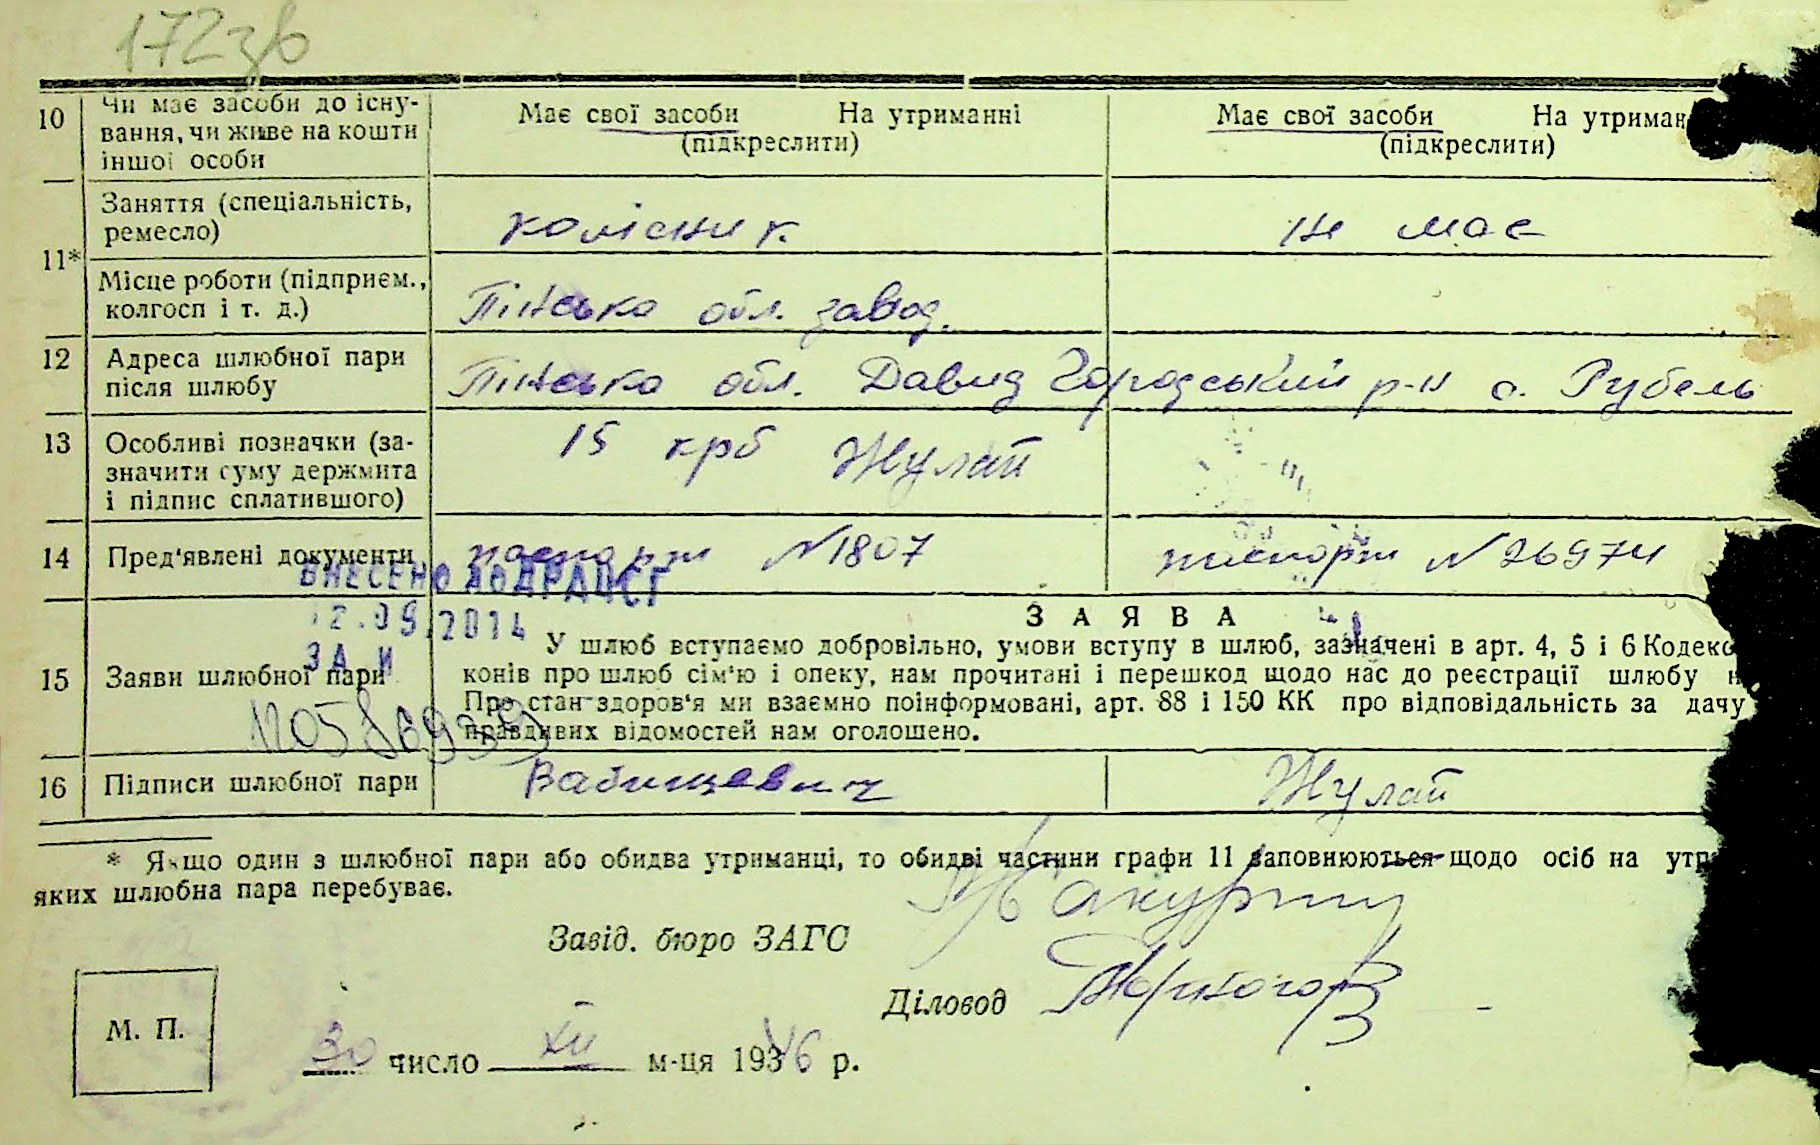 172зв
10 Чи має засоби до існу- Має свої засоби На утриманні Має свої засоби На утриман
вання, чи живе на кошти (підкреслити) (підкреслити)
іншої особи
Заняття (спеціальність,
ремесло) колісник не має
11*
Місце роботи (підприєм.,
колгосп і т. д.) Пінська обл. завод.
12 Адреса шлюбної пари
після шлюбу Пінська обл. Давид Городський р-н с. Рубель
13 Особливі позначки (за- 15 крб Жулай
значити суму держмита
і підпис сплатившого)
14 Пред'явлені документи паспорт №1807 паспорт № 26974
ВНЕСЕНО ДО ДРАЦСГ
12.09.2014
З А Я В А
У шлюб вступаємо добровільно, умови вступу в шлюб, зазначені в арт. 4, 5 і 6 Кодекс
15 Заяви шлюбної пари конів про шлюб сім'ю і опеку, нам прочитані і перешкод щодо нас до реєстрації шлюбу н
Про стан здоров'я ми взаємно поінформовані, арт. 88 і 150 КК про відповідальність за дачу
правдивих відомостей нам оголошено.
16 Підписи шлюбної пари Вабищевич Жулай
* Якщо один з шлюбної пари або обидва утриманці, то обидві частини графи 11 заповнюються щодо осіб на утр
яких шлюбна пара перебуває.
Завід. бюро ЗАГС
Діловод
М. П.
30 число XII м-ця 1946 р.